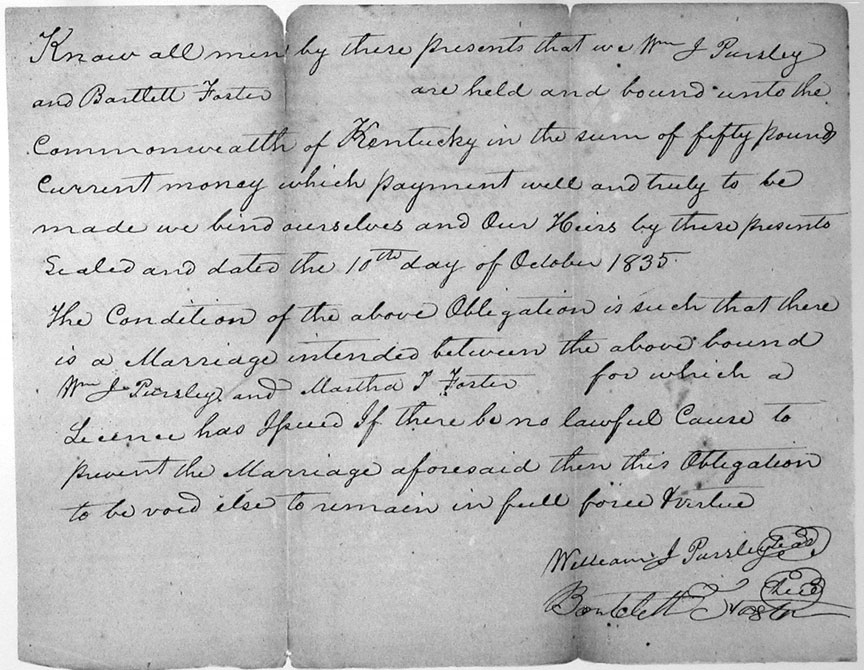 Know all men by these presents that we Wm J Pursley
and Bartlett Foster are held and bound unto the
Commonwealth of Kentucky in the sum of fifty pounds
Current money which payment well and truly to be
made we bind ourselves and Our Heirs by these presents
Sealed and dated the 10th day of October 1835.
The Condition of the above Obligation is such that there
is a Marriage intended between the above bound
Wm J Pursley and Martha T Foster for which a
Licence has Issued If there be no lawful Cause to
prevent the Marriage aforesaid then this Obligation
to be void else to remain in full force & virtue
William J Pursley Seal
Bartlett Foster Seal